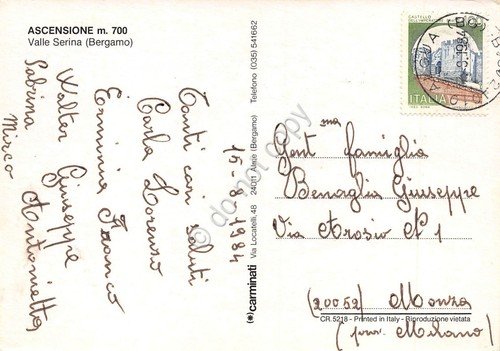 ASCENSIONE m. 700
Valle Serina (Bergamo)
15-8-1984
Tanti cari saluti
Carla Lorenzo
Erminia Franco
Walter Giuseppe
Sabrina Antonietta
Mirco
(*)carminati Via Locatelli, 48 24011 Almè (Bergamo) Telefono (035) 541662
CASTELLO
ITALIA
(BG)
Gent.ma famiglia
Benaglia Giuseppe
Via Arosio N° 1
(20052) Monza
CR.5218 - Printed in Italy - Riproduzione vietata
(prov. Milano)
© do not copy